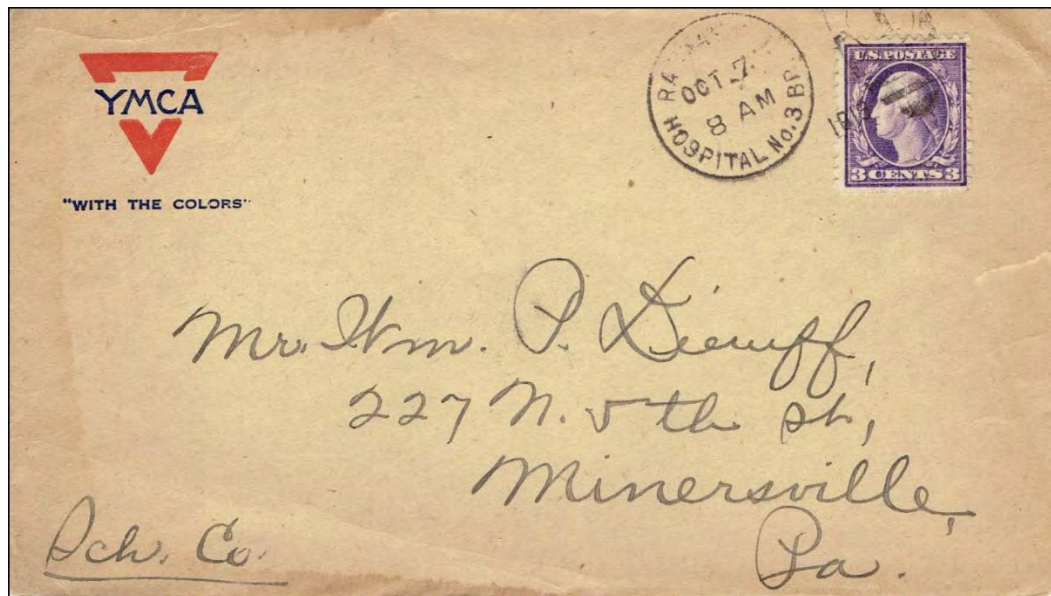 YMCA
"WITH THE COLORS"
OCT 7
8 AM
HOSPITAL No. 3
U.S. POSTAGE
3 CENTS 3
Mr. Wm. P.
227 N. 5th St,
Minersville,
Pa.
Sch. Co.